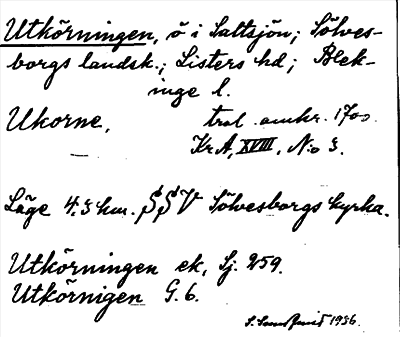 Utkörningen, ö i Saltsjön; Sölves-
borgs landsk.; Listers hd; Blek-
inge l.
Ukorne, trol. omkr. 1700
KrA, XVIII, No 3.
Läge 4.3 km. SSV Sölvesborgs kyrka.
Utkörningen ek, Sj. 259.
Utkörnigen G. 6.
1936.